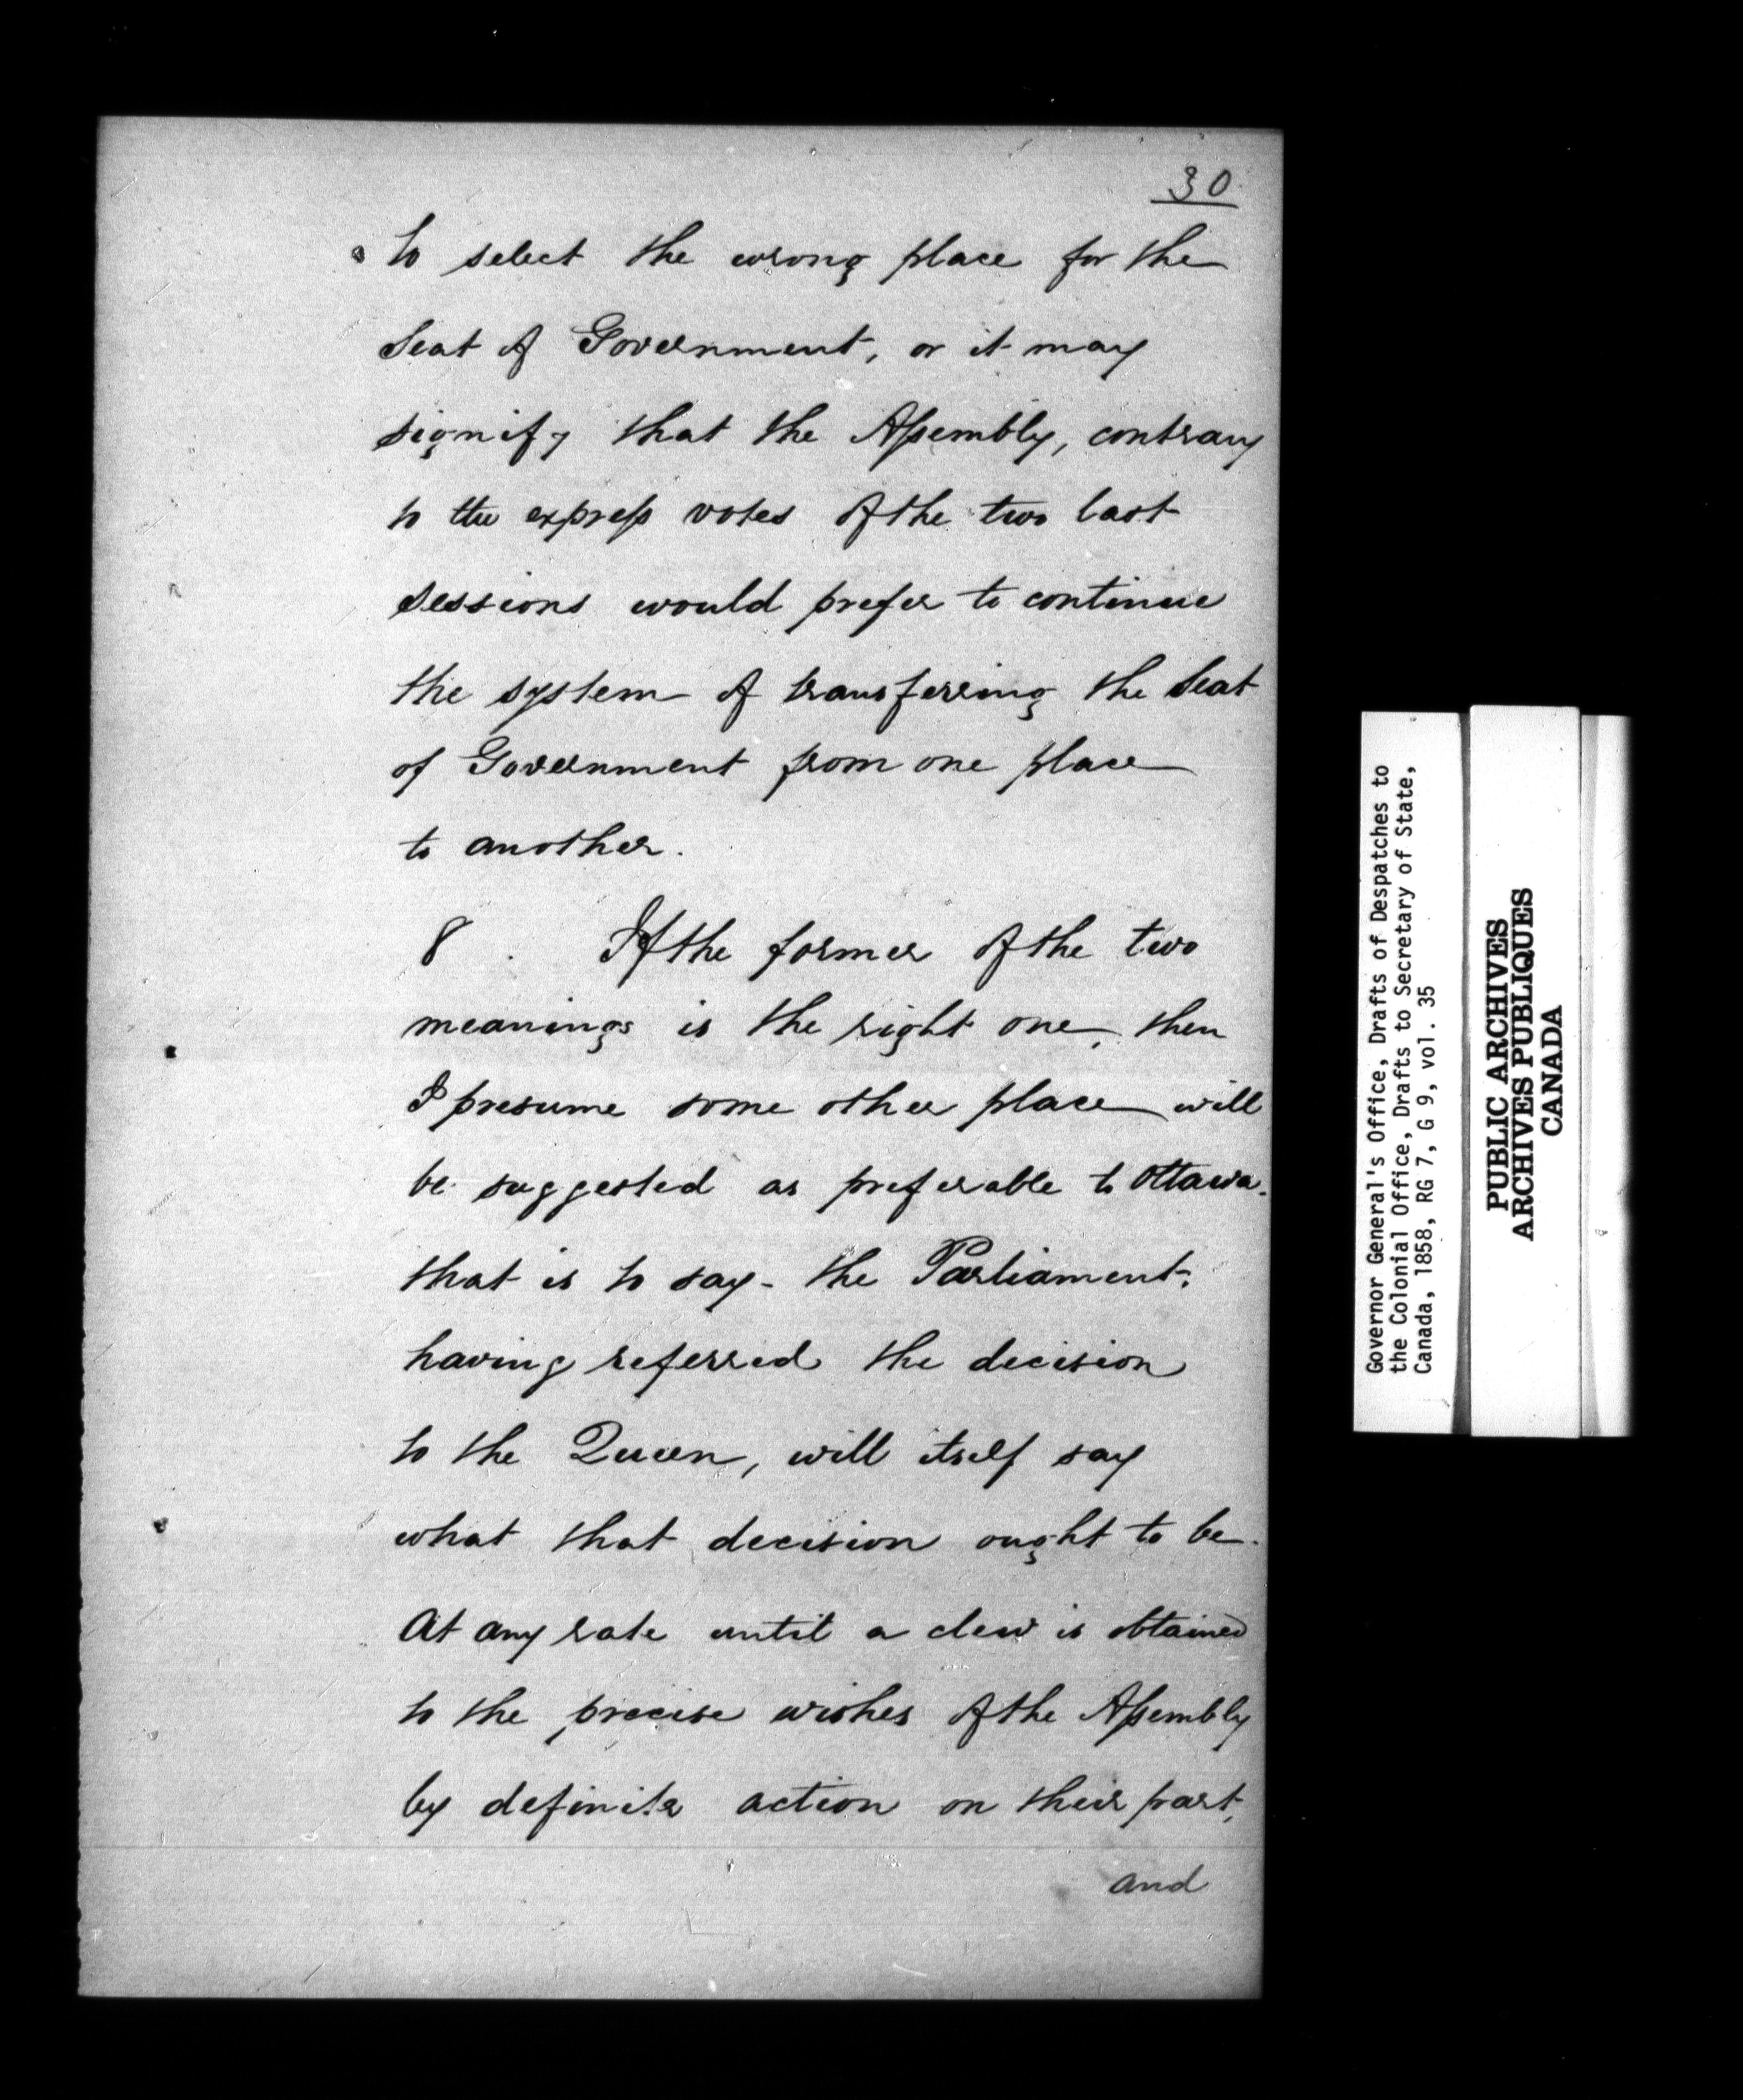 30
to select the wrong place for the
Seat of Government, or it may
signify that the Assembly, contrary
to the express votes of the two last
sessions would prefer to continue
the system of transferring the Seat
of Government from one place
to another.
8. If the former of the two
meanings is the right one, then
I presume some other place will
be suggested as preferable to Ottawa.
that is to say - the Parliament,
having referred the decision
to the Queen, will itself say
what that decision ought to be.
At any rate until a clew is obtained
to the precise wishes of the Assembly
by definite action on their part,
and
Governor General's Office, Drafts of Despatches to
the Colonial Office, Drafts to Secretary of State,
Canada, 1858, RG 7, G 9, vol. 35
PUBLIC ARCHIVES
ARCHIVES PUBLIQUES
CANADA